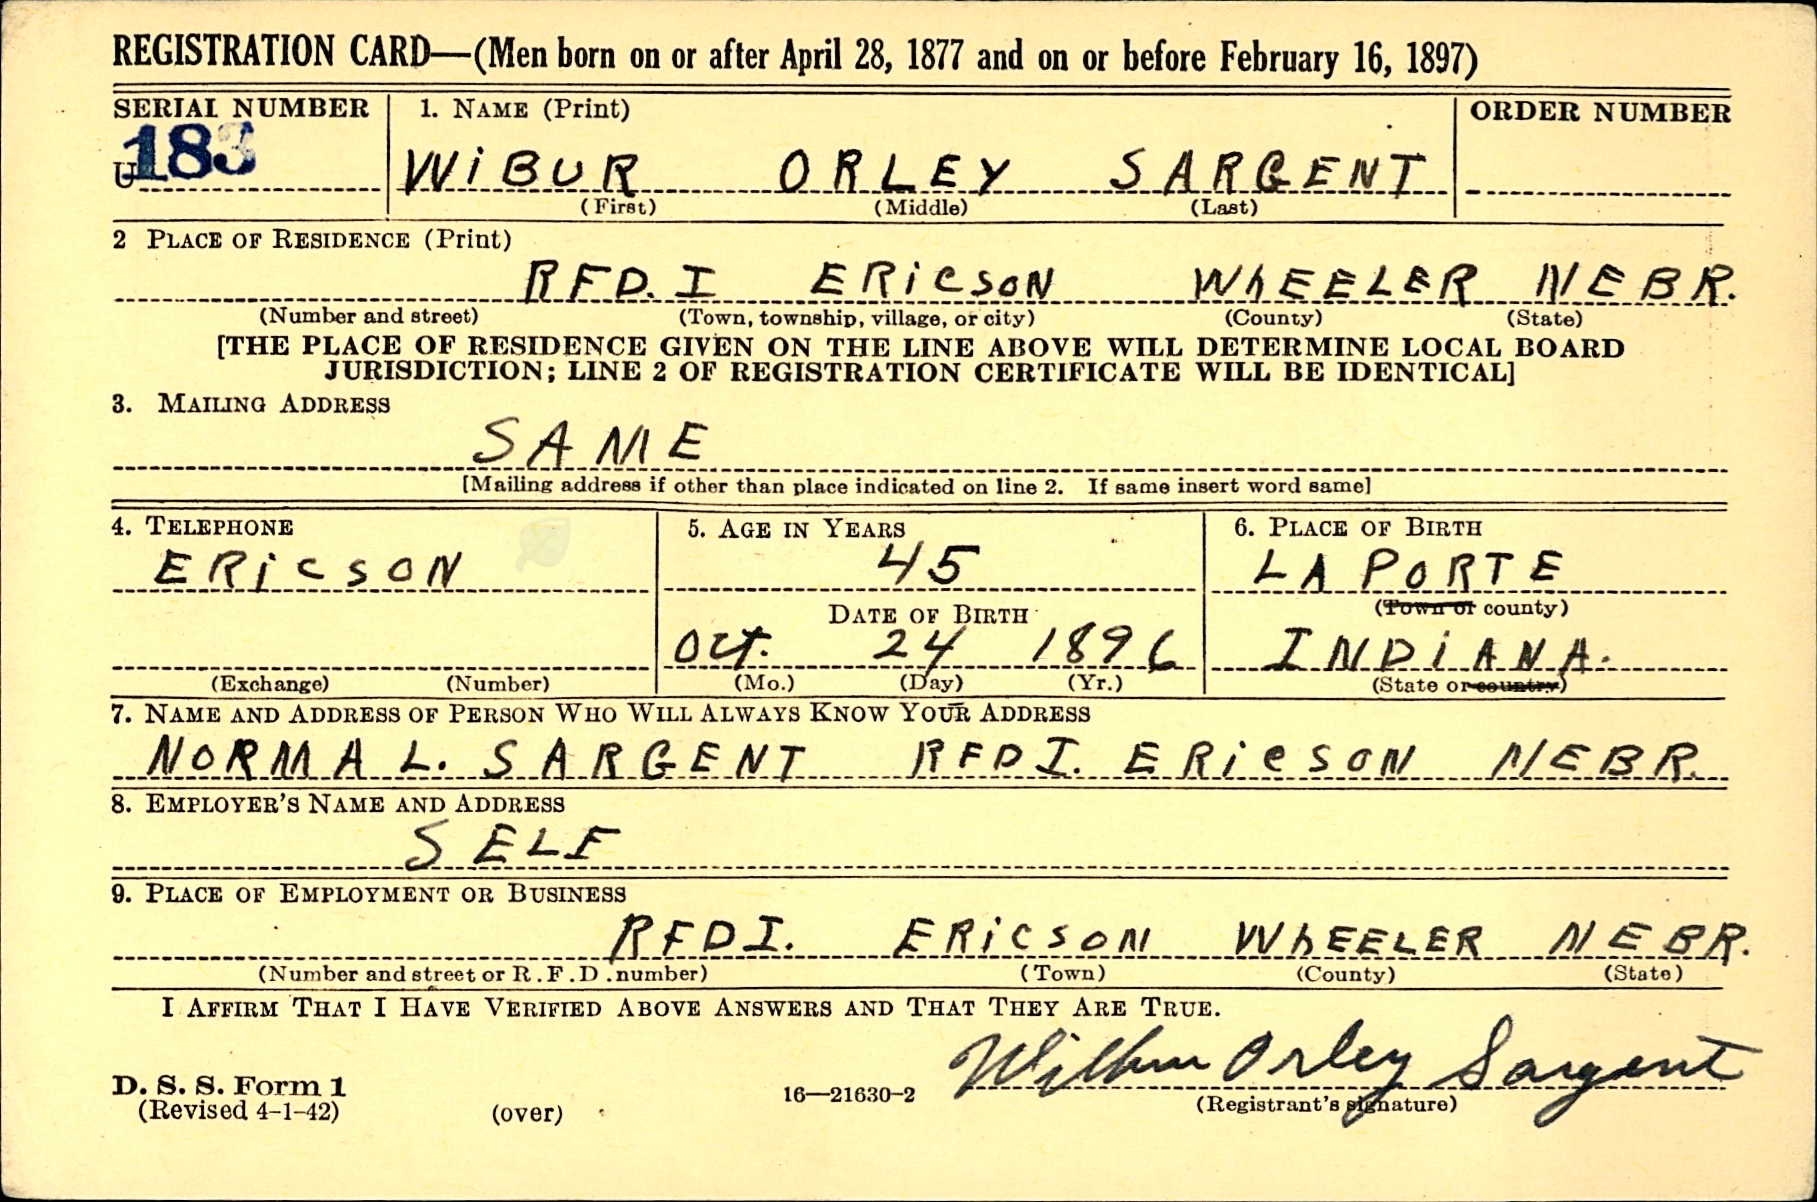 REGISTRATION CARD—(Men born on or after April 28, 1877 and on or before February 16, 1897)
SERIAL NUMBER 1. NAME (Print) ORDER NUMBER
U 183 WiBUR ORLEY SARGENT
(First) (Middle) (Last)
2 PLACE OF RESIDENCE (Print)
RFD. I ERiCSON WhEELER NEBR.
(Number and street) (Town, township, village, or city) (County) (State)
[THE PLACE OF RESIDENCE GIVEN ON THE LINE ABOVE WILL DETERMINE LOCAL BOARD
JURISDICTION; LINE 2 OF REGISTRATION CERTIFICATE WILL BE IDENTICAL]
3. MAILING ADDRESS
SAME
[Mailing address if other than place indicated on line 2. If same insert word same]
4. TELEPHONE 5. AGE IN YEARS 6. PLACE OF BIRTH
ERiCSON 45 LA PORTE
DATE OF BIRTH (Town or county)
Oct. 24 1896 INDiANA.
(Exchange) (Number) (Mo.) (Day) (Yr.) (State or country)
7. NAME AND ADDRESS OF PERSON WHO WILL ALWAYS KNOW YOUR ADDRESS
NORMA L. SARGENT RFD I. ERiCSON NEBR.
8. EMPLOYER'S NAME AND ADDRESS
SELF
9. PLACE OF EMPLOYMENT OR BUSINESS
RFD I. ERiCSON WhEELER NEBR.
(Number and street or R. F. D. number) (Town) (County) (State)
I AFFIRM THAT I HAVE VERIFIED ABOVE ANSWERS AND THAT THEY ARE TRUE.
Wilbur Orley Sargent
D. S. S. Form 1
(Revised 4-1-42) (over) 16—21630-2 (Registrant's signature)